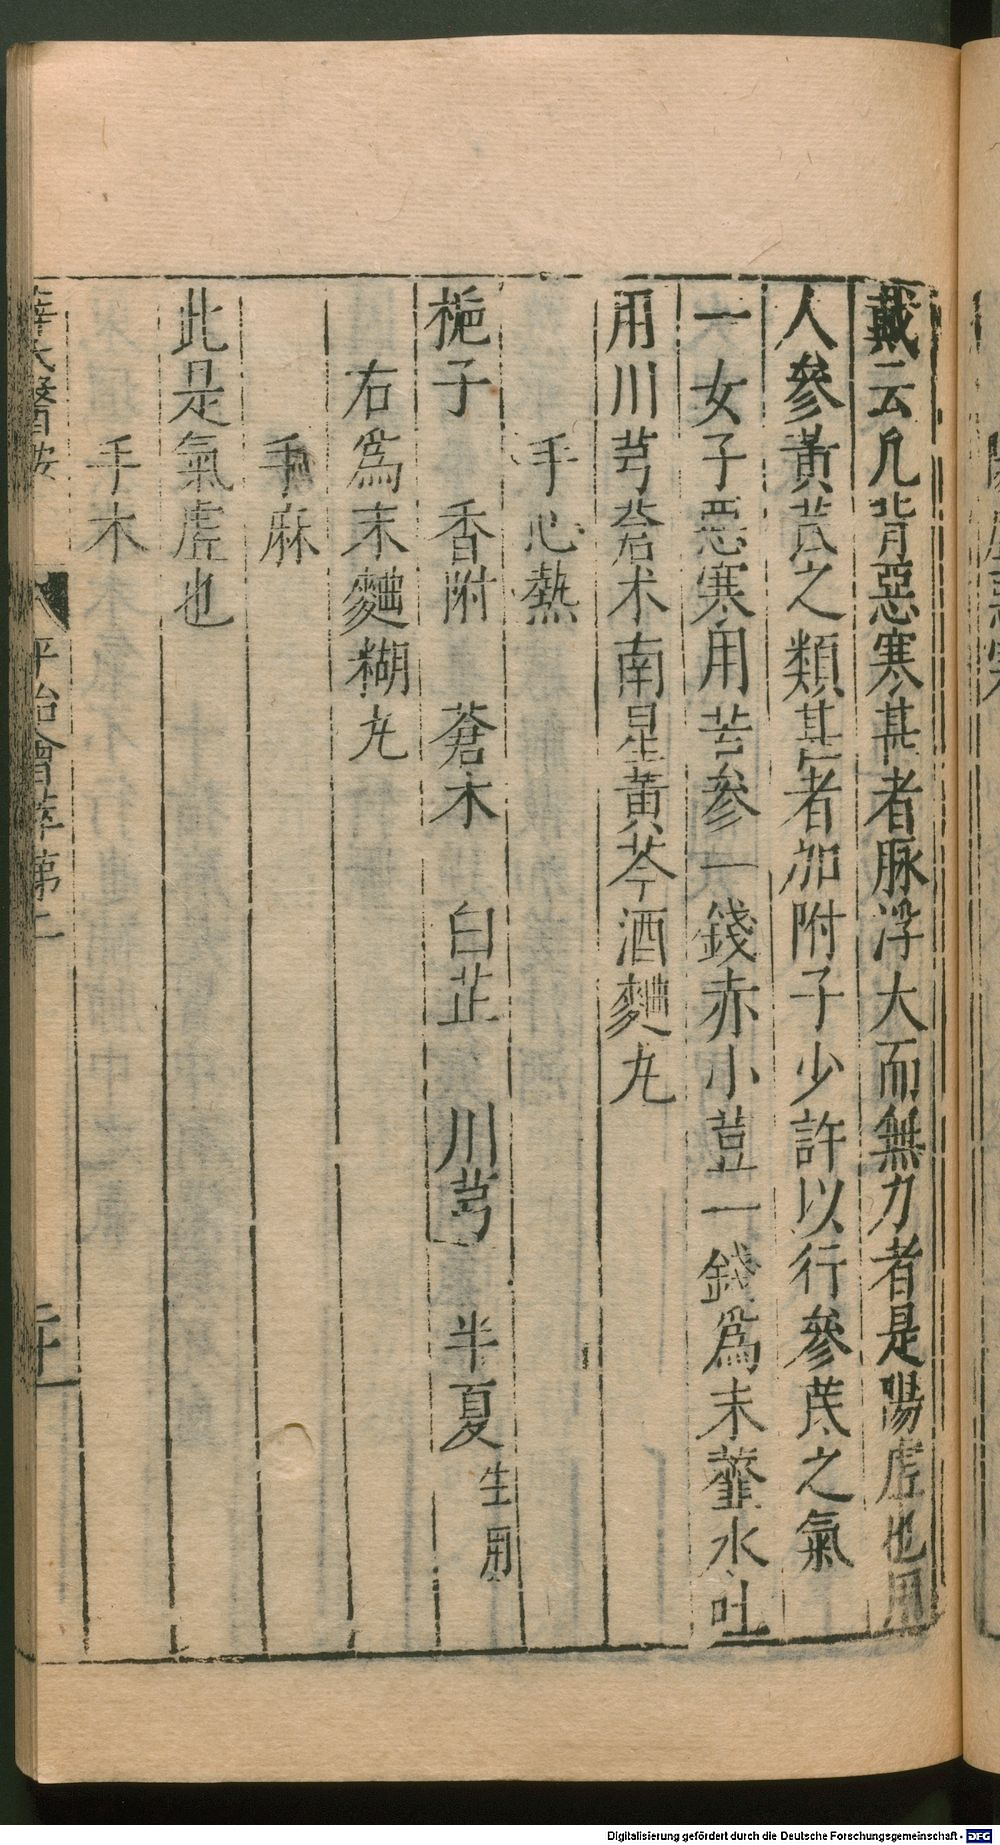 戴云凡背惡寒甚者脉浮大而無力者是陽虛也用
人參黃茋之類甚者加附子少許以行參茋之氣
一女子惡寒用苦參一錢赤小荳一錢爲末虀水吐
用川芎蒼术南星黃芩酒麯丸
手心熱
梔子 香附 蒼木 白芷 川芎 半夏生用
右爲末麯糊丸
手麻
此是氣虛也
手木
薛氏醫按 平治會萃第二
Digitalisierung gefördert durch die Deutsche Forschungsgemeinschaft - DFG